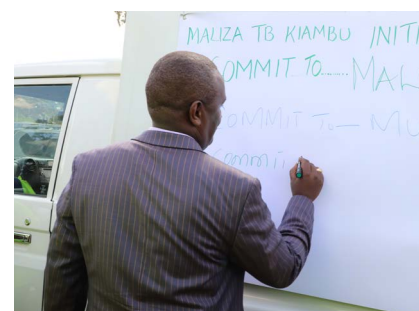 MALIZA TB KIAMBU INITI
COMMIT TO........ MAL
COMMIT To — MU
Commi